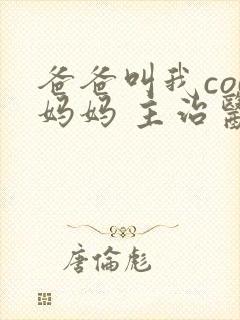 爸爸叫我co
妈妈 主治醫
唐倫彪